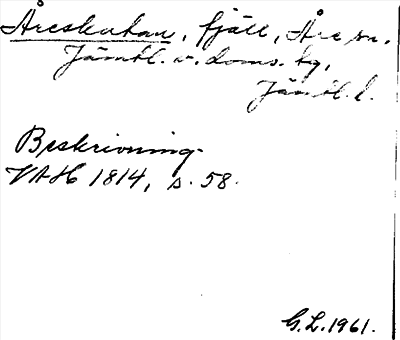 Åreskutan, fjäll, Åre sn.
Jämtl. v. doms. tg,
Jämtl. l.
Beskrivning.
VAH 1814, s. 58.
G.L. 1961.